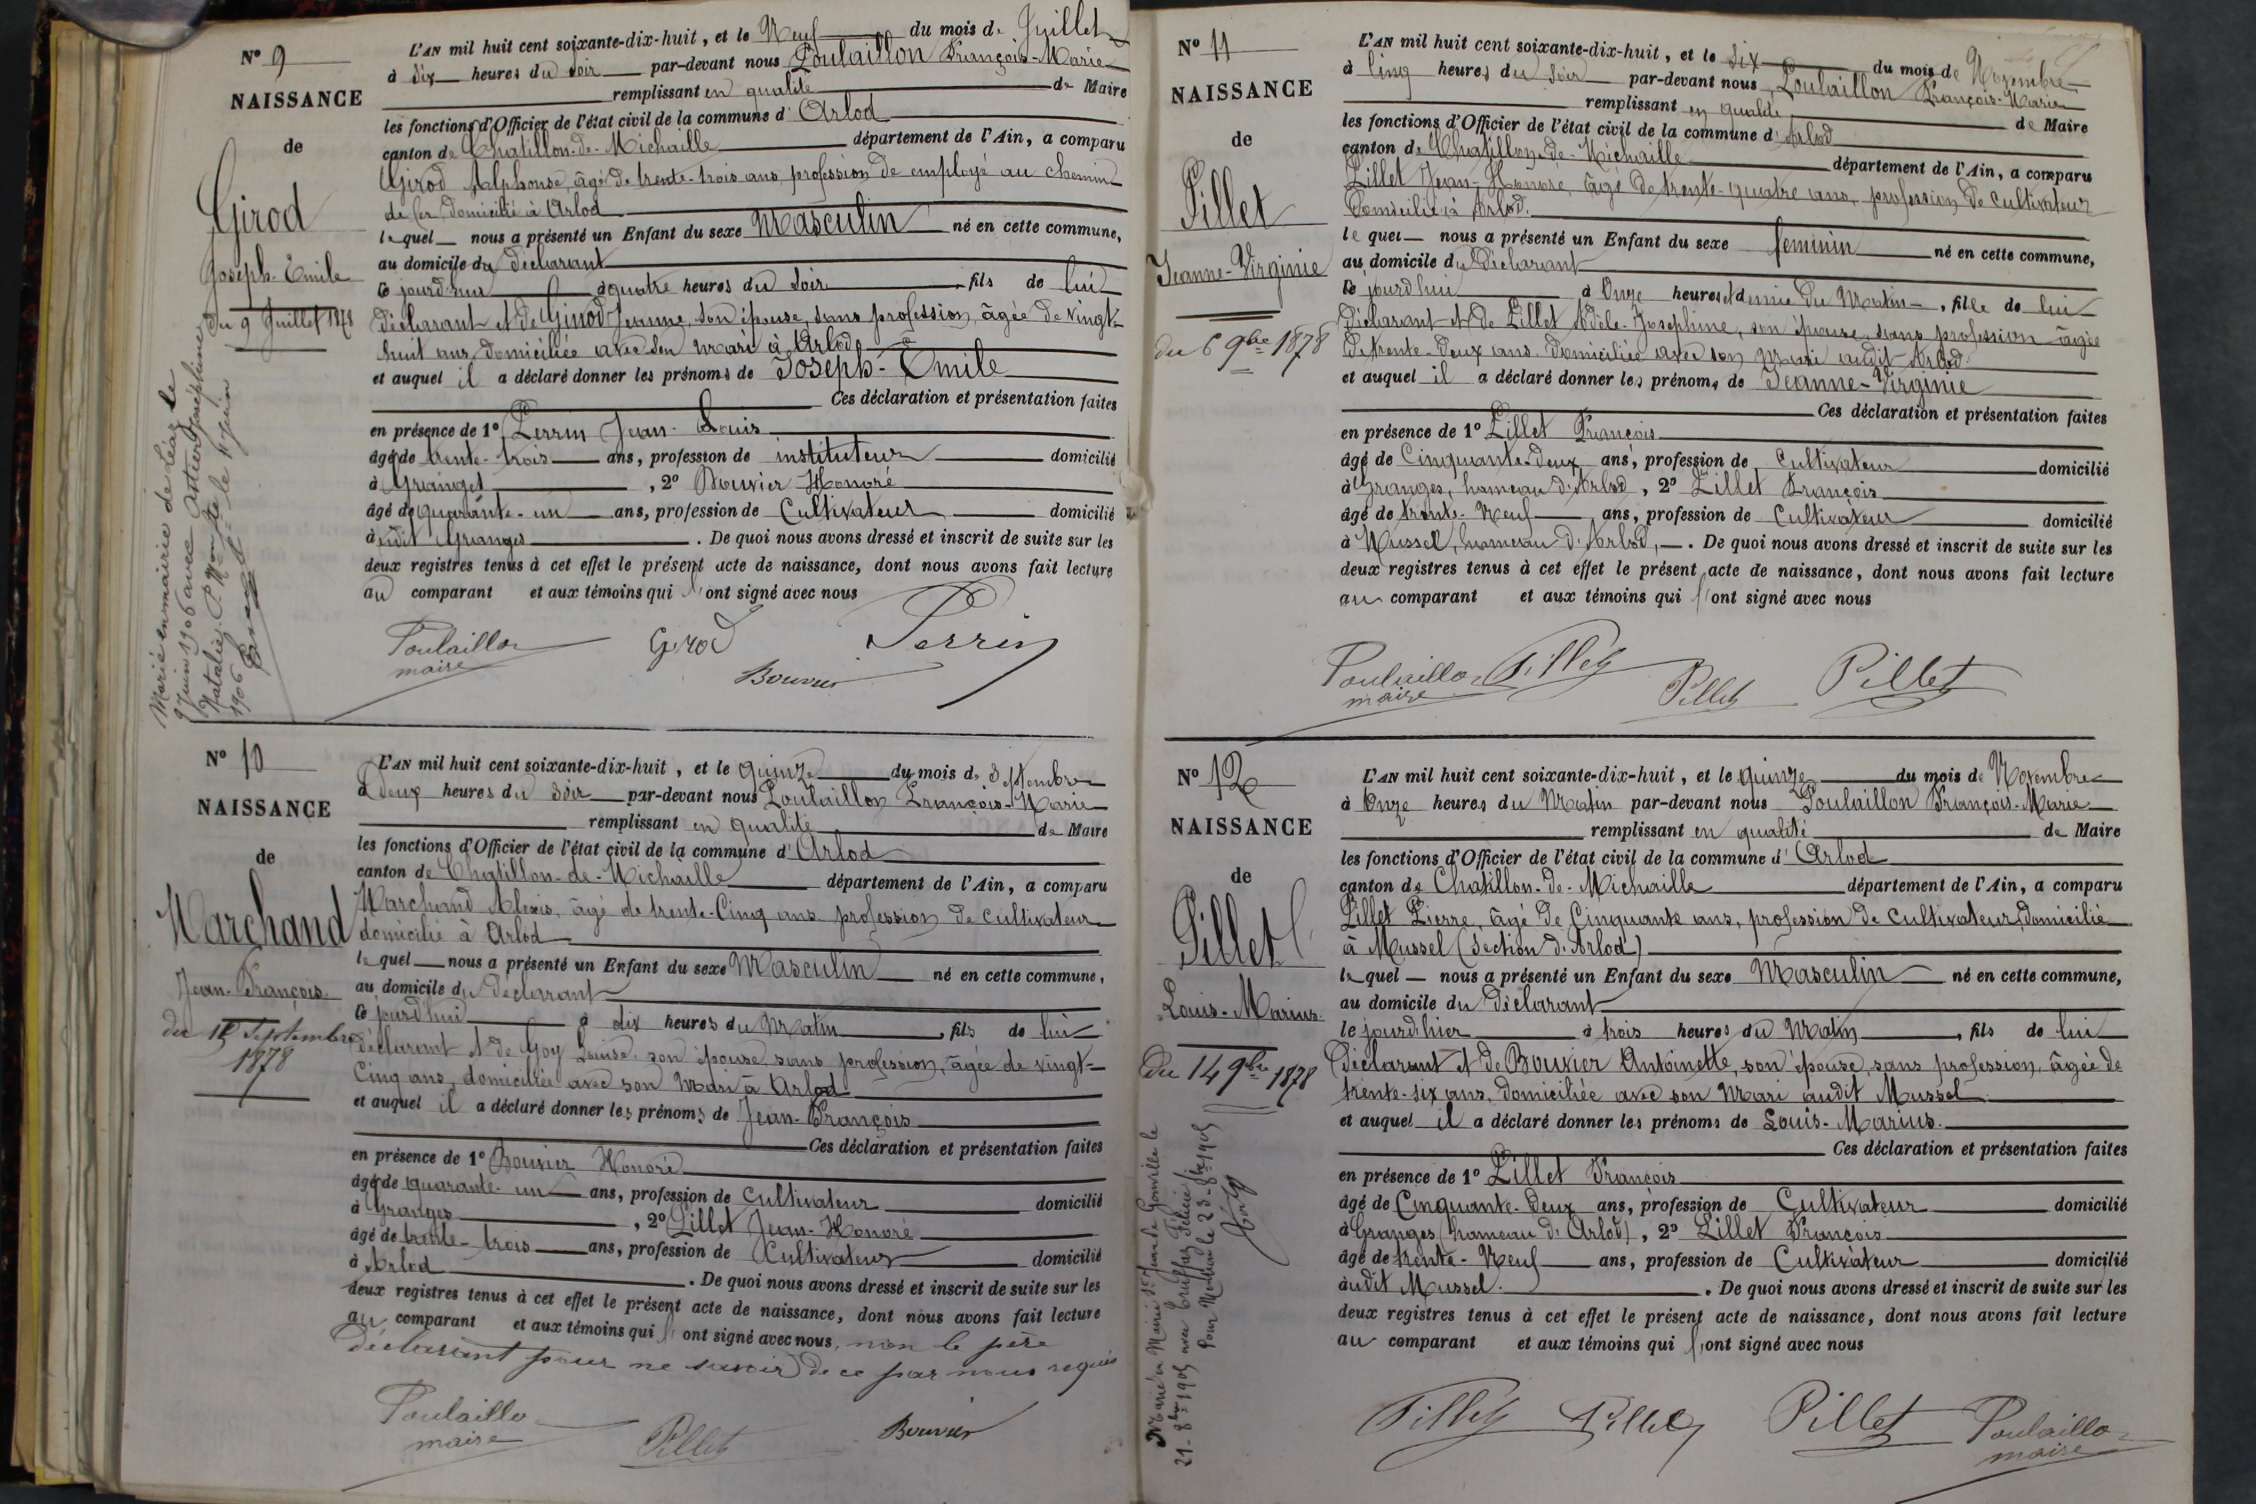 Nº 9
NAISSANCE
de
Girod
Joseph-Emile
du 9 Juillet 1878
Marié en mairie de Léaz le
9 juin 1906 avec
Joséphine
Natalie.
1906
L'AN mil huit cent soixante-dix-huit, et le Neuf du mois de Juillet
à Six heures du soir par-devant nous Poulaillon François-Marie
remplissant en qualité de Maire
les fonctions d'Officier de l'état civil de la commune d'Arlod
canton de Chatillon-de-Michaille département de l'Ain, a comparu
Girod Alphonse, âgé de trente-trois ans, profession de employé au chemin
de fer domicilié à Arlod
lequel nous a présenté un Enfant du sexe Masculin né en cette commune,
au domicile du déclarant
Ce jourd'hui à quatre heures du soir fils de lui
déclarant et de Girod Jeanne, son épouse, sans profession, âgée de vingt-
huit ans, domiciliée avec son mari à Arlod
et auquel il a déclaré donner les prénoms de Joseph-Emile
Ces déclaration et présentation faites
en présence de 1º Perrin Jean-Louis
âgé de trente-trois ans, profession de instituteur domicilié
à Granges, 2º Bouvier Honoré
âgé de quarante-un ans, profession de Cultivateur domicilié
à udit Granges. De quoi nous avons dressé et inscrit de suite sur les
deux registres tenus à cet effet le présent acte de naissance, dont nous avons fait lecture
au comparant et aux témoins qui l'ont signé avec nous
Poulaillon Girod Perrin
maire Bouvier
Nº 10
NAISSANCE
de
Marchand
Jean-François
du 15 Septembre
1878
L'AN mil huit cent soixante-dix-huit, et le quinze du mois de Septembre
à Deux heures du soir par-devant nous Poulaillon François-Marie
remplissant en qualité de Maire
les fonctions d'Officier de l'état civil de la commune d'Arlod
canton de Chatillon-de-Michaille département de l'Ain, a comparu
Marchand Alexis, âgé de trente-Cinq ans profession de cultivateur
domicilié à Arlod
lequel nous a présenté un Enfant du sexe Masculin né en cette commune,
au domicile du déclarant
Ce jourd'hui à dix heures du Matin, fils de lui
déclarant et de Goy Louise, son épouse sans profession, âgée de vingt-
Cinq ans, domiciliée avec son Mari à Arlod
et auquel il a déclaré donner les prénoms de Jean-François
Ces déclaration et présentation faites
en présence de 1º Bouvier Honoré
âgé de quarante-un ans, profession de cultivateur domicilié
à Granges, 2º Pillet Jean-Honoré
âgé de trente-trois ans, profession de Cultivateur domicilié
à Arlod. De quoi nous avons dressé et inscrit de suite sur les
deux registres tenus à cet effet le présent acte de naissance, dont nous avons fait lecture
au comparant et aux témoins qui l'ont signé avec nous, non le père
déclarant pour ne savoir de ce par nous requis
Poulaillon Pillet Bouvier
maire
Nº 11
NAISSANCE
de
Pillet
Jeanne-Virginie
du 6 9bre 1878
L'AN mil huit cent soixante-dix-huit, et le Six du mois de Novembre
à Cinq heures du Soir par-devant nous Poulaillon François-Marie
remplissant en qualité de Maire
les fonctions d'Officier de l'état civil de la commune d'Arlod
canton de Chatillon-de-Michaille département de l'Ain, a comparu
Pillet Jean-Honoré, âgé de trente-quatre ans, profession de cultivateur
Domicilié à Arlod.
lequel nous a présenté un Enfant du sexe feminin né en cette commune,
au domicile du Déclarant
Ce jourd'hui à Onze heures et demie du Matin, fille de lui
Déclarant et de Pillet Adèle-Josephine, son épouse, sans profession âgée
de trente-deux ans domiciliée avec son Mari audit Arlod.
et auquel il a déclaré donner les prénoms de Jeanne-Virginie
Ces déclaration et présentation faites
en présence de 1º Pillet François
âgé de Cinquante-deux ans, profession de Cultivateur domicilié
à Granges, hameau d'Arlod, 2º Pillet François
âgé de trente-Neuf ans, profession de Cultivateur domicilié
à Mussel, hameau d'Arlod,. De quoi nous avons dressé et inscrit de suite sur les
deux registres tenus à cet effet le présent acte de naissance, dont nous avons fait lecture
au comparant et aux témoins qui l'ont signé avec nous
Poulaillon Pillet Pillet Pillet
maire
Nº 12
NAISSANCE
de
Pillet
Louis-Marius
du 14 9bre 1878
Marié en Mairie St Jean de Gonville le
21-8bre 1905 avec Truffaz Félicie
L'AN mil huit cent soixante-dix-huit, et le quinze du mois de Novembre
à Onze heures du Matin par-devant nous Poulaillon François-Marie
remplissant en qualité de Maire
les fonctions d'Officier de l'état civil de la commune d'Arlod
canton de Chatillon-de-Michaille département de l'Ain, a comparu
Pillet Pierre, âgé de Cinquante ans, profession de cultivateur, domicilié
à Mussel (Section d'Arlod)
lequel nous a présenté un Enfant du sexe Masculin né en cette commune,
au domicile du déclarant
le jourd'hier à trois heures du Matin, fils de lui
Déclarant et de Bouvier Antoinette, son épouse, sans profession, âgée de
trente-six ans, domiciliée avec son Mari audit Mussel
et auquel il a déclaré donner les prénoms de Louis-Marius.
Ces déclaration et présentation faites
en présence de 1º Pillet François
âgé de Cinquante-Deux ans, profession de Cultivateur domicilié
à Granges (hameau d'Arlod), 2º Pillet François
âgé de trente-Neuf ans, profession de Cultivateur domicilié
àudit Mussel. De quoi nous avons dressé et inscrit de suite sur les
deux registres tenus à cet effet le présent acte de naissance, dont nous avons fait lecture
au comparant et aux témoins qui l'ont signé avec nous
Pillet Pillet Pillet Poulaillon
maire